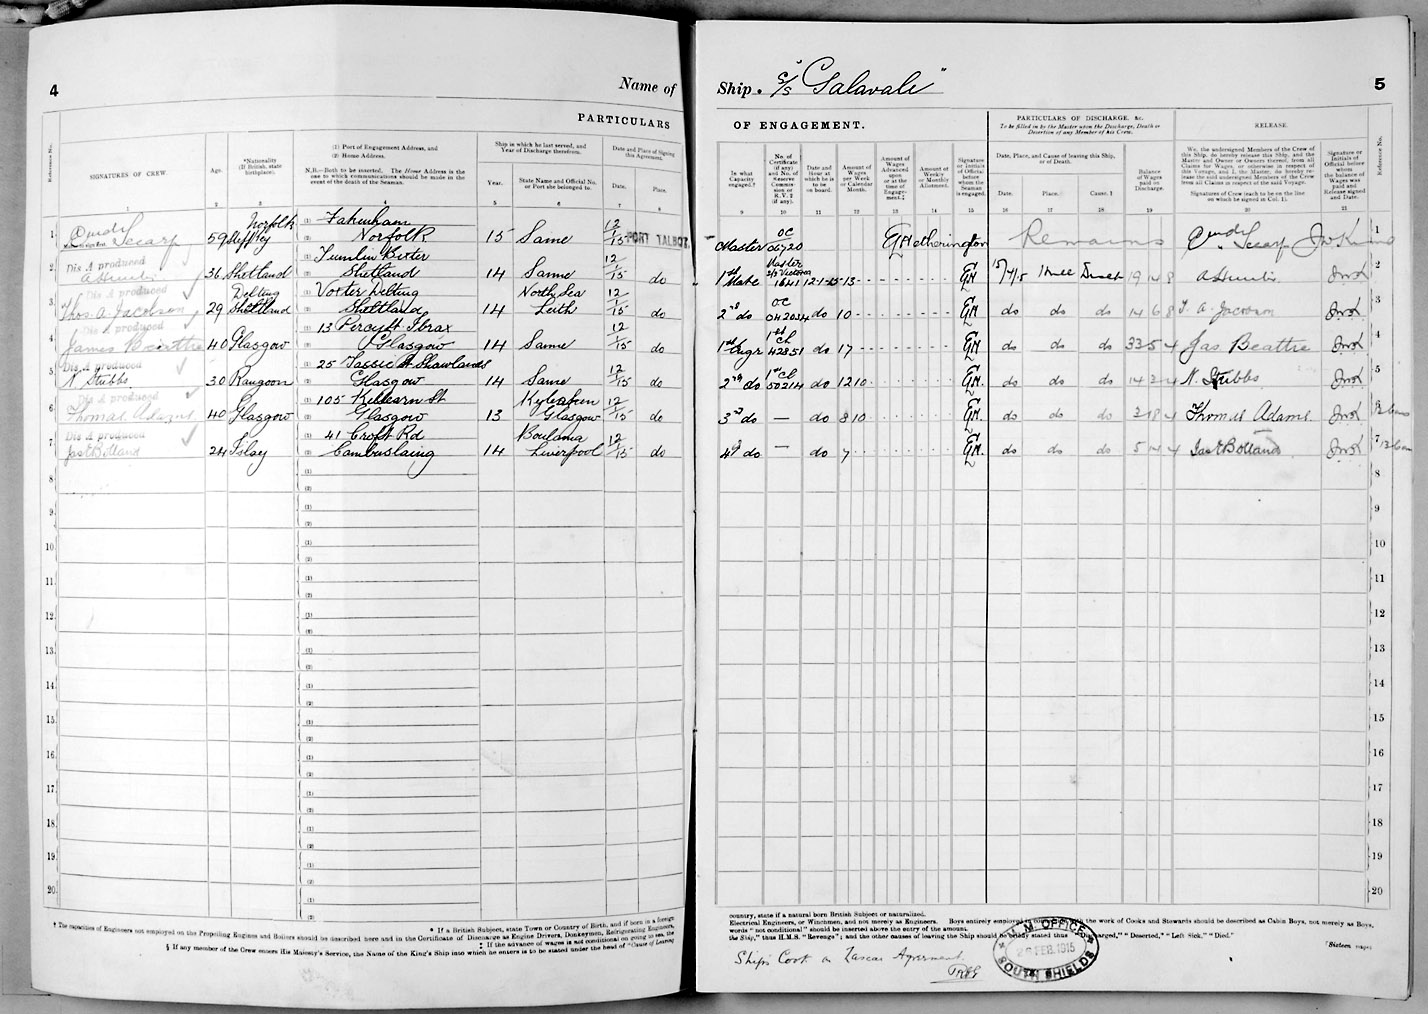 4
Name of
Ship. S/S "Galavale"
5
PARTICULARS
OF ENGAGEMENT.
PARTICULARS OF DISCHARGE, &c.
To be filled in by the Master upon the Discharge, Death or Desertion of any Member of his Crew.
RELEASE.
Reference No.
SIGNATURES OF CREW.
Age.
*Nationality (If British, state birthplace).
(1) Port of Engagement Address, and
(2) Home Address.
N.B.—Both to be inserted. The Home Address is the one to which communications should be made in the event of the death of the Seaman.
Ship in which he last served, and Year of Discharge therefrom.
Year.
State Name and Official No. or Port she belonged to.
Date and Place of Signing this Agreement.
Date.
Place.
In what Capacity engaged.†
No. of Certificate (if any) and No. of Reserve Commission or R.V. 2 (if any).
Date and Hour at which he is to be on board.
Amount of Wages per Week or Calendar Month.
Amount of Wages Advanced upon or at the time of Engagement.‡
Amount of Weekly or Monthly Allotment.
Signature or Initials of Official before whom the Seaman is engaged.
Date, Place, and Cause of leaving this Ship, or of Death.
Date.
Place.
Cause.§
Balance of Wages paid on Discharge.
We, the undersigned Members of the Crew of this Ship, do hereby release this Ship, and the Master and Owner or Owners thereof, from all Claims for Wages, or otherwise in respect of this Voyage, and I, the Master, do hereby release the said undersigned Members of the Crew from all Claims in respect of the said Voyage.
Signatures of Crew (each to be on the line on which he signed in Col. 1).
Signature or Initials of Official before whom the balance of Wages was paid and Release signed and Date.
Reference No.
1 2 3 4 5 6 7 8
9 10 11 12 13 14 15 16 17 18 19 20 21
1 59 Norfolk Fakenham Norfolk 15 Same 12/1/15 PORT TALBOT Master OC G Hetherington Remains 1
Dis A produced
2 36 Shetland Shetland 14 Same 12/1/15 do 1st Mate Master 1641 12-1-15 13 GH 15/4/15 Hull Disch 19 14 8 2
Dis A produced
3 Thos. A. Jacobson 29 Delting Shetland Voxter Delting Shetland 14 North Sea Leith 12/1/15 do 2nd do OC 042034 do 10 GH do do do 14 6 8 T. A. Jacobson 3
Dis A produced
4 James Beattie 40 Glasgow 13 Percy St Ibrox Glasgow 14 Same 12/1/15 do 1st Engr 1st Cl 42851 do 17 GH do do do 33 5 4 Jas Beattie 4
Dis A produced
5 N. Stubbs 30 Rangoon 25 Tassie St Shawlands Glasgow 14 Same 12/1/15 do 2nd do 1st Cl 50214 do 12 10 GH. do do do 14 2 4 N. Stubbs 5
Dis A produced
6 Thomas Adams 40 Glasgow 105 Killearn St Glasgow 13 Kyleakin Glasgow 12/1/15 do 3rd do — do 8 10 GH. do do do 3 18 4 Thomas Adams 6
Dis A produced
7 Jas E Bolland 24 Islay 41 Croft Rd Cambuslaing 14 Boulama Liverpool 12/1/15 do 4th do — do 7 GH do do do 5 14 4 Jas E Bolland 7
8 8
9 9
10 10
11 11
12 12
13 13
14 14
15 15
16 16
17 17
18 18
19 19
20 20
* If a British Subject, state Town or Country of Birth, and if born in a foreign
country, state if a natural born British Subject or naturalized.
† The capacities of Engineers not employed on the Propelling Engines and Boilers should be described here and in the Certificate of Discharge as Engine Drivers, Donkeymen, Refrigerating Engineers,
Electrical Engineers, or Winchmen, and not merely as Engineers. Boys entirely employed in connection with the work of Cooks and Stewards should be described as Cabin Boys, not merely as Boys,
‡ If the advance of wages is not conditional on going to sea, the
words "not conditional" should be inserted above the entry of the amount.
§ If any member of the Crew enters His Majesty's Service, the Name of the King's Ship into which he enters is to be stated under the head of "Cause of Leaving
the Ship," thus H.M.S. "Revenge"; and the other causes of leaving the Ship should be briefly stated thus "Discharged," "Deserted," "Left Sick," "Died."
Ship's Cook on Lascar Agreement.
M.M. OFFICE
26 FEB. 1915
SOUTH SHIELDS